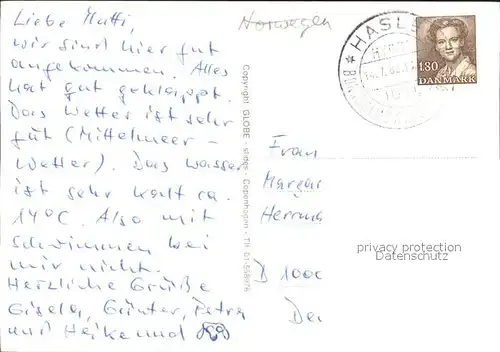 Liebe Mutti,
wir sind hier gut
angekommen. Alles
hat gut geklappt.
Das Wetter ist sehr
gut (Mittelmeer-
Wetter). Das Wasser
ist sehr kalt ca.
14°C. Also mit
schwimmen bei
mir nicht.
Herzliche Grüße
Gisela, Günter, Petra
und Heike und
Norwegen
HASLE
180
DANMARK
Copyright GLOBE slides - Copenhagen - Tlf. 01-558976
Frau
Margar
Herrma
D 1000
privacy protection
Datenschutz